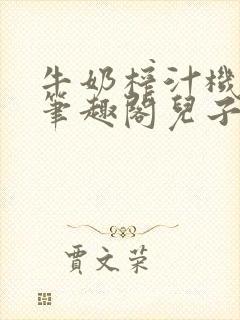 牛奶榨汁機
筆趣閣兒子
賈文榮